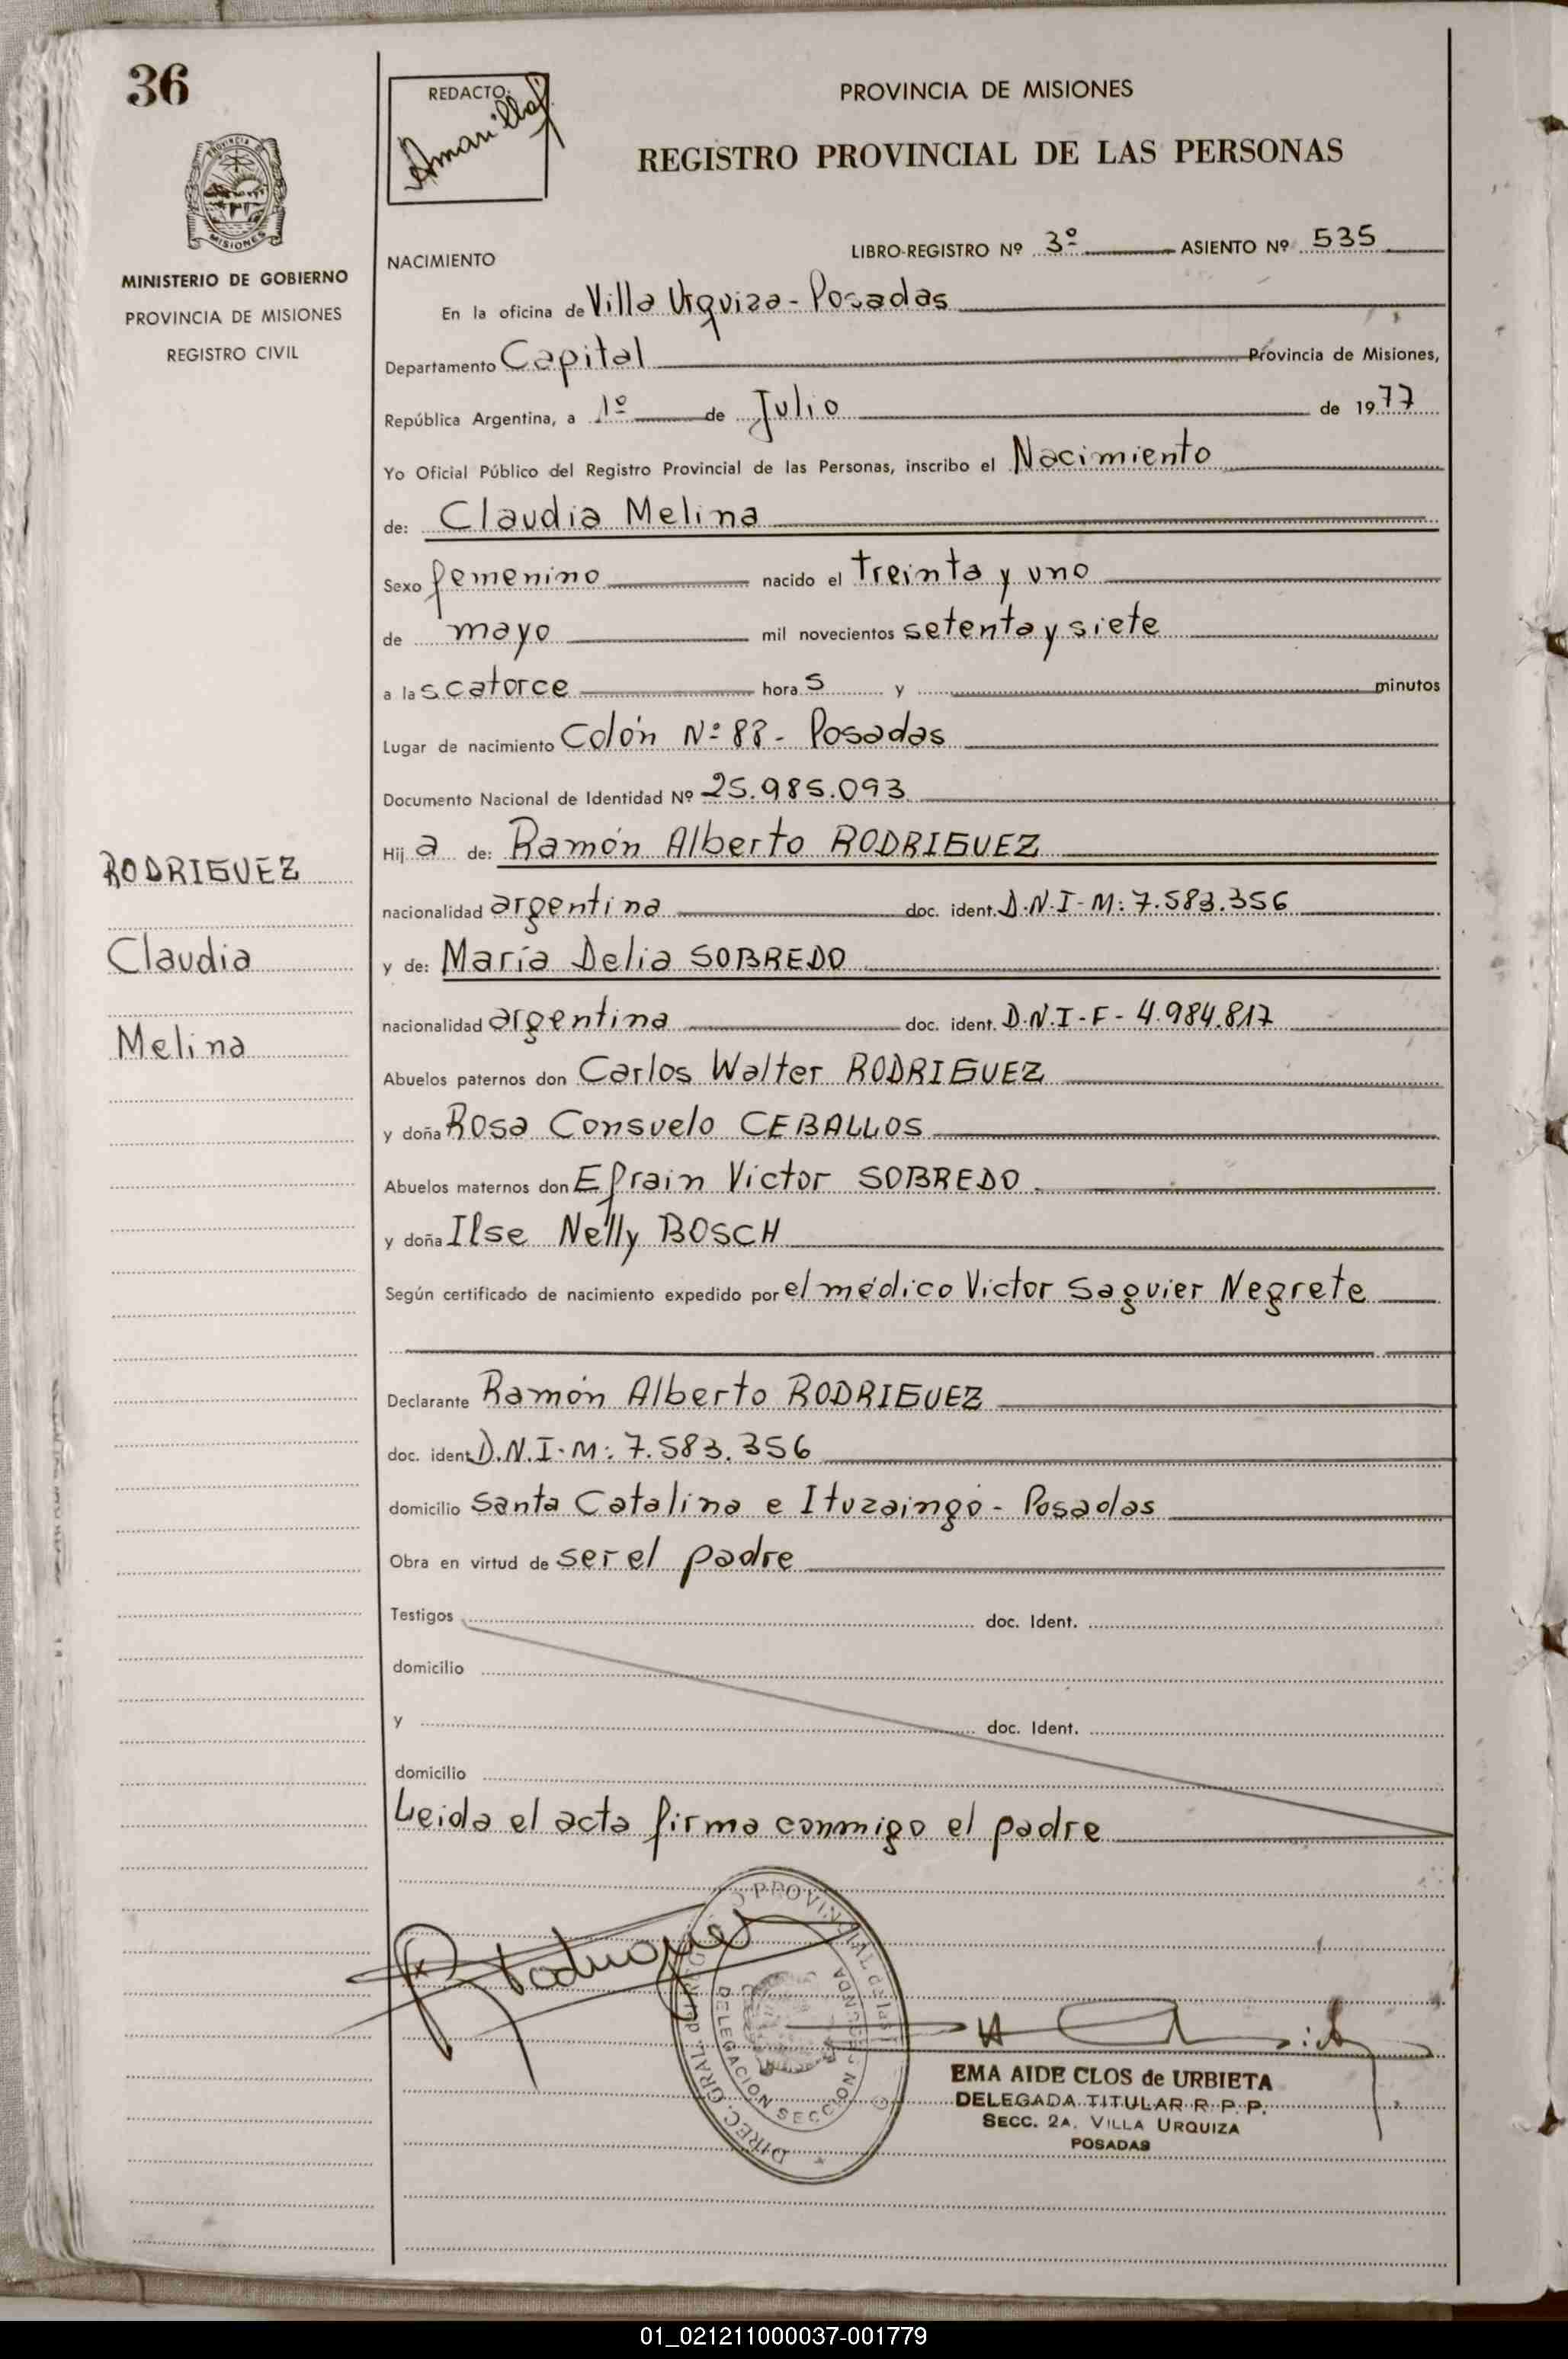 36
PROVINCIA DE MISIONES
MINISTERIO DE GOBIERNO
PROVINCIA DE MISIONES
REGISTRO CIVIL
RODRIGUEZ
Claudia
Melina
REDACTO:
Amarilla
PROVINCIA DE MISIONES
REGISTRO PROVINCIAL DE LAS PERSONAS
NACIMIENTO
LIBRO-REGISTRO Nº 3º ASIENTO Nº 535
En la oficina de Villa Urquiza - Posadas
Departamento Capital Provincia de Misiones,
República Argentina, a 1º de Julio de 1977
Yo Oficial Público del Registro Provincial de las Personas, inscribo el Nacimiento
de: Claudia Melina
Sexo femenino nacido el treinta y uno
de mayo mil novecientos setenta y siete
a las catorce horas y minutos
Lugar de nacimiento Colón Nº 88 - Posadas
Documento Nacional de Identidad Nº 25.985.093
Hija de: Ramón Alberto RODRIGUEZ
nacionalidad argentina doc. ident. D.N.I-M: 7.583.356
y de: María Delia SOBREDO
nacionalidad argentina doc. ident. D.N.I-F-4.984.817
Abuelos paternos don Carlos Walter RODRIGUEZ
y doña Rosa Consuelo CEBALLOS
Abuelos maternos don Efrain Victor SOBREDO.
y doña Ilse Nelly BOSCH
Según certificado de nacimiento expedido por el médico Victor Saguier Negrete
Declarante Ramón Alberto RODRIGUEZ
doc. ident D.N.I-M: 7.583.356
domicilio Santa Catalina e Ituzaingó - Posadas
Obra en virtud de ser el padre
Testigos doc. Ident.
domicilio
y doc. Ident.
domicilio
Leida el acta firma conmigo el padre
Rodriguez
DELEGACION SECCION SEGUNDA
EMA AIDE CLOS de URBIETA
DELEGADA TITULAR R. P. P.
SECC. 2A. VILLA URQUIZA
POSADAS
01_021211000037-001779